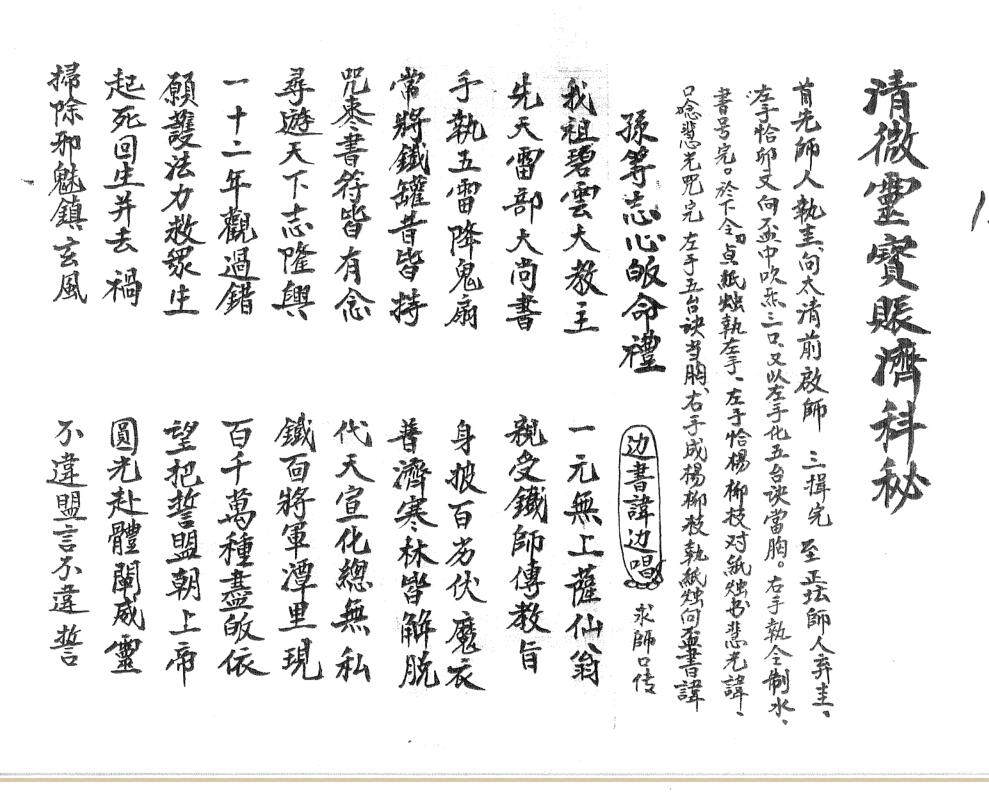 清微靈寶賬濟科秘
首先師人執圭向太清前啟師 三揖完 至正坛師人弃圭、
左手恰卯文向盃中吹炁三口又以左手化五台诀當胸。右手執令制水、
書号完。於下令貞紙烛執左手、左手恰楊柳枝对紙烛书悲光諱、
口唸悲光咒完 左手五台诀当胸、右手成楊柳枝執紙烛向盃書諱
孫等志心皈命禮 边書諱边唱 求師口传
我祖碧雲大教主 一元無上薩仙翁
先天雷部大尚書 親受鐵師傳教旨
手執五雷降鬼扇 身披百衲伏魔衣
常將鐵罐昔皆持 普濟寒林皆解脱
咒棗書符皆有念 代天宣化總無私
尋遊天下志隆興 鐵面將軍潭里現
一十二年觀過錯 百千萬種盡皈依
願護法力救眾生 望把誓盟朝上帝
起死回生并去禍 圓光赴體闡威靈
掃除邪魅鎮玄風 不違盟言不違誓